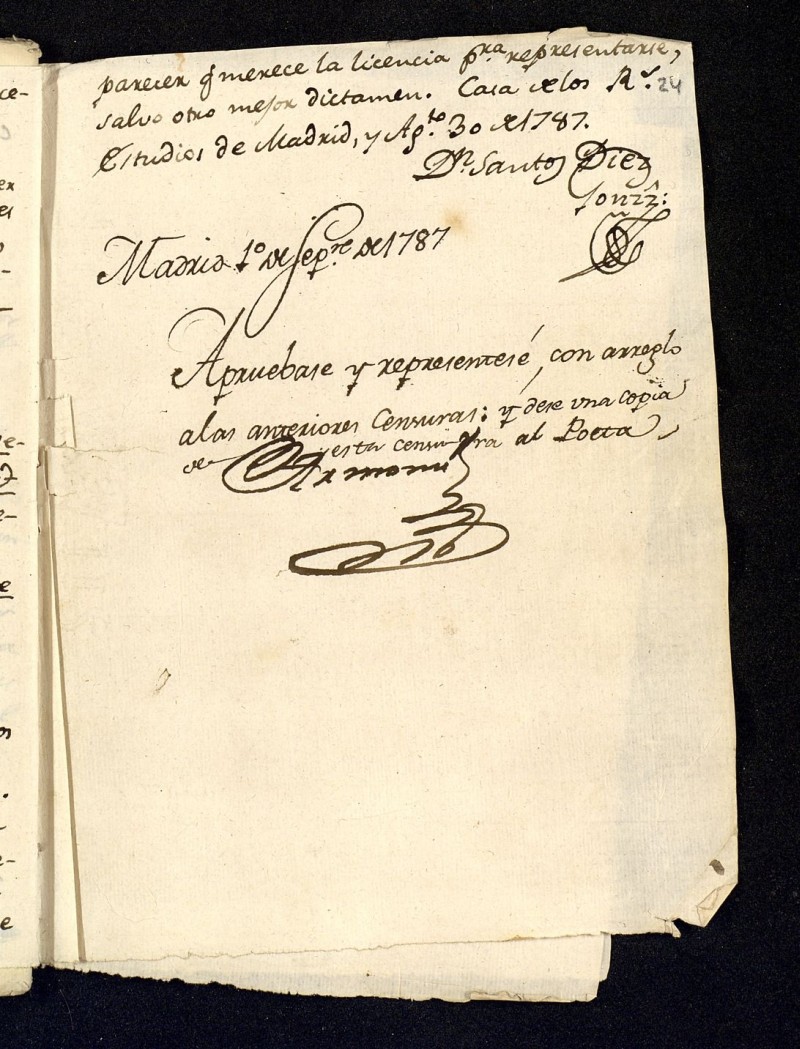 parecer q̃ merece la licencia pra representarse,
salvo otro mejor dictamen. Casa de los Rs. 24
Estudios de Madrid, y Agto 30 de 1787.
Dn. Santos Diez
Gonzz:
Madrid 1o. de Sepre. de 1787
Apruebase y representesé, con arreglo
a las anteriores Censuras: y dese una copia
de esta censura al Poeta
Armona